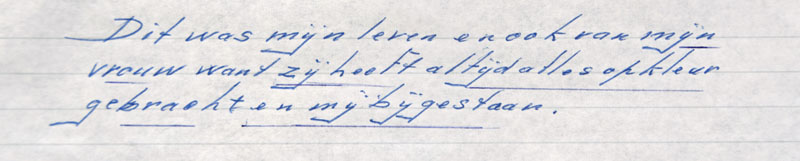 Dit was mijn leven en ook van mijn
vrouw want zij heeft altijd alles op kleur
gebracht en mij bijgestaan.